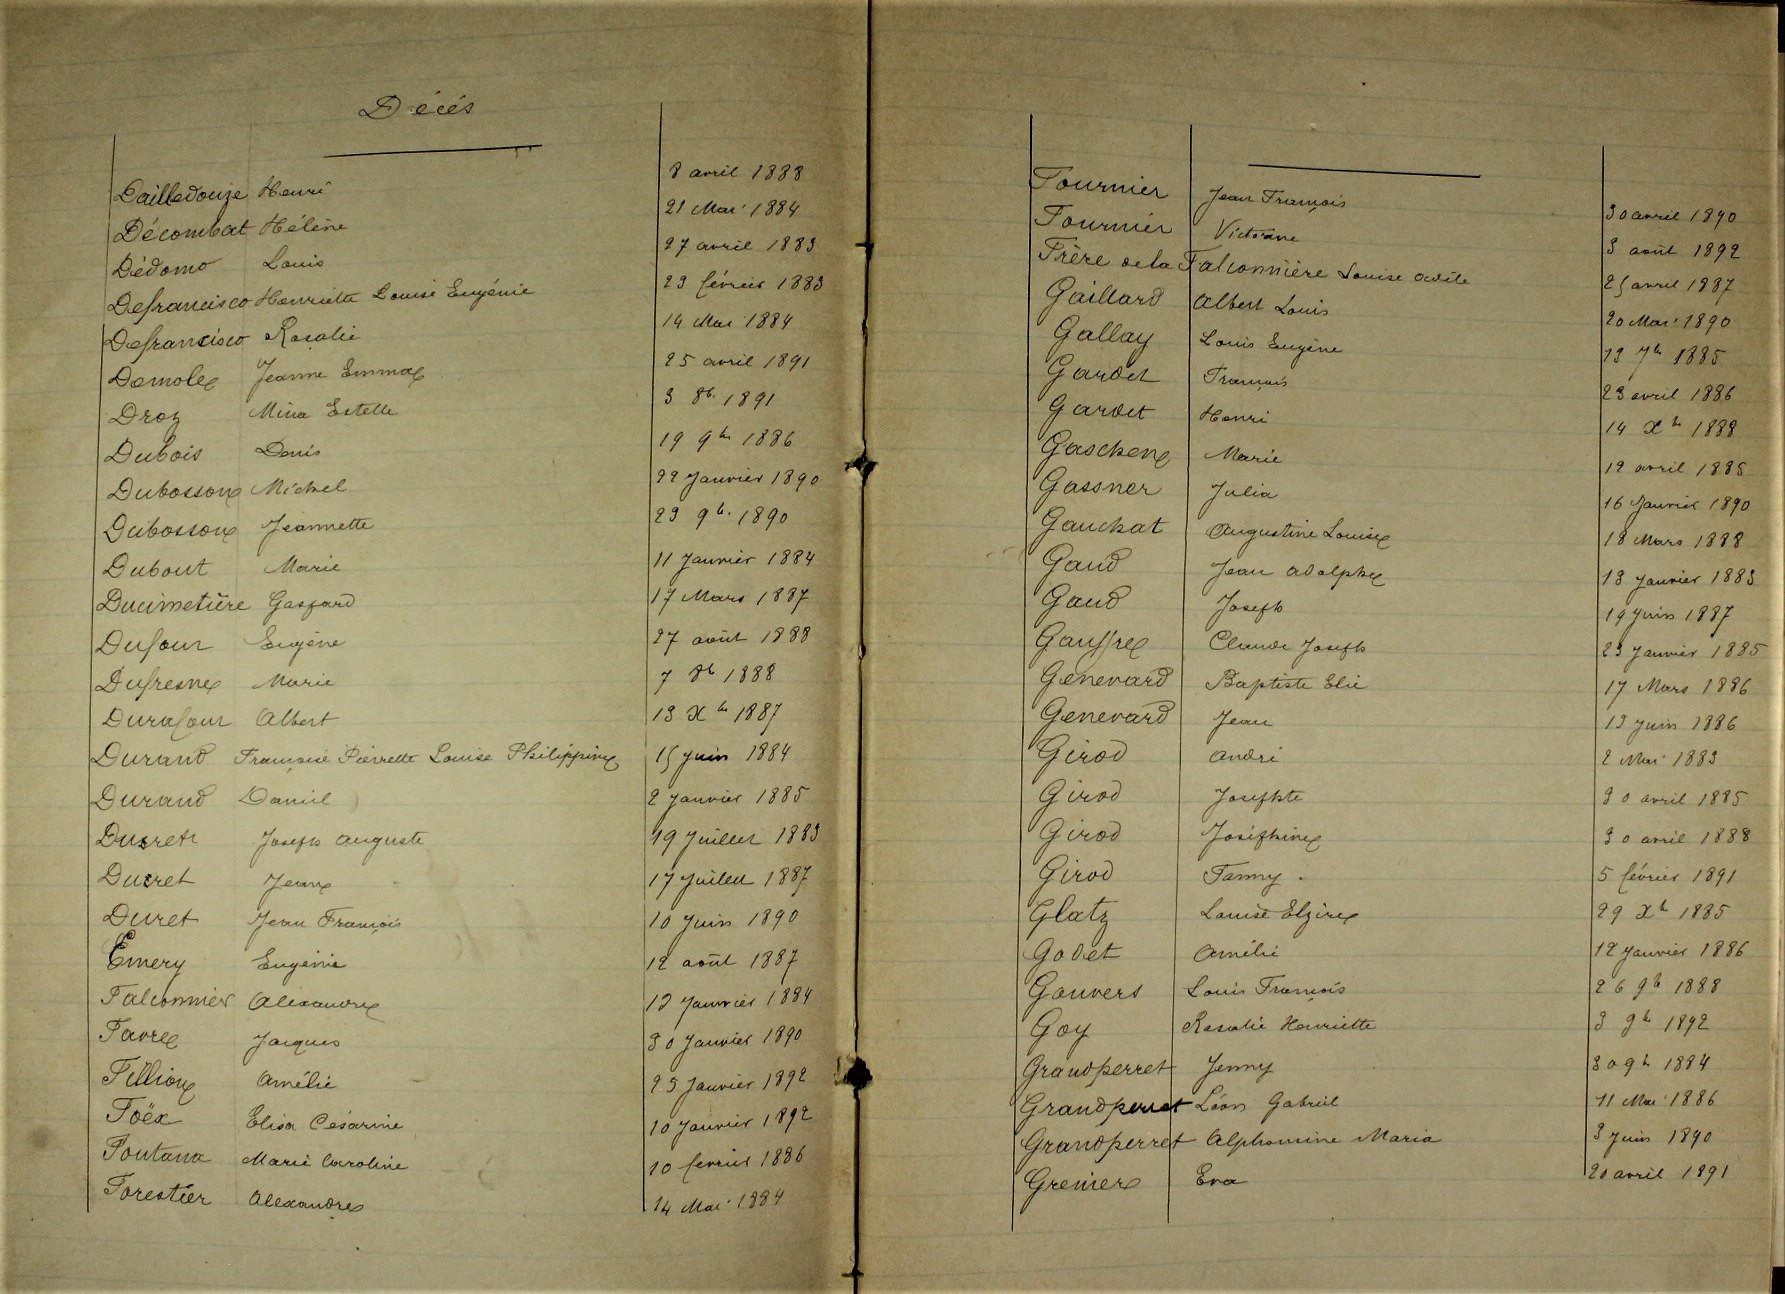 Décés
Dailledouze Henri 8 avril 1888
Décombat Hélène 21 Mai 1884
Dédomo Louis 27 avril 1883
Defrancisco Henriette Louise Eugénie 23 février 1883
Defrancisco Rosalie 14 Mai 1884
Demole Jeanne Emma 25 avril 1891
Droz Mina Estelle 3 8b. 1891
Dubois Denis 19 9b 1886
Dubosson Michel 22 Janvier 1890
Dubosson Jeannette 23 9b. 1890
Dubout Marie 11 Janvier 1884
Ducimetière Gaspard 17 Mars 1887
Dufour Eugène 27 août 1888
Dufresne Marie 7 8b 1888
Durafour Albert 13 Xb 1887
Durand Françoise Pierrette Louise Philippine 15 juin 1884
Durand Daniel 2 Janvier 1885
Ducret Joseph Auguste 19 Juillet 1883
Ducret Jenny 17 Juillet 1887
Duret Jean François 10 Juin 1890
Emery Eugénie 12 août 1887
Falconnier Alexandre 12 Janvier 1884
Favre Jacques 30 Janvier 1890
Fillion Amélie 25 Janvier 1892
Foëx Elisa Césarine 10 Janvier 1892
Fontana Marie Caroline 10 fevrier 1886
Forestier Alexandre 14 Mai 1884
Fournier Jean François 30 avril 1890
Fournier Victorine 3 août 1892
Frère de la Falconnière Louise Odile 25 avril 1887
Gaillard Albert Louis 20 Mai 1890
Gallay Louis Eugène 13 7b 1885
Gardet François 23 avril 1886
Gardet Henri 14 Xb 1888
Gaschen Marie 12 avril 1885
Gassner Julia 16 Janvier 1890
Gauchat Augustine Louise 18 Mars 1888
Gaud Jean Adolphe 18 Janvier 1883
Gaud Joseph 19 Juin 1887
Gauffre Claude Joseph 23 Janvier 1885
Genevard Baptiste Elie 17 Mars 1886
Genevard Jean 13 Juin 1886
Girod André 2 Mai 1883
Girod Josephte 30 avril 1885
Girod Joséphine 30 avril 1888
Girod Fanny 5 février 1891
Glatz Louise Elzire 29 Xb 1885
Godet Amélie 12 Janvier 1886
Gouvers Louis François 26 9b 1888
Goy Rosalie Henriette 3 9b 1892
Grandperret Jenny 30 9b 1884
Grandperret Léon Gabriel 11 Mai 1886
Grandperret Alphonsine Maria 3 Juin 1890
Grenier Eva 20 avril 1891